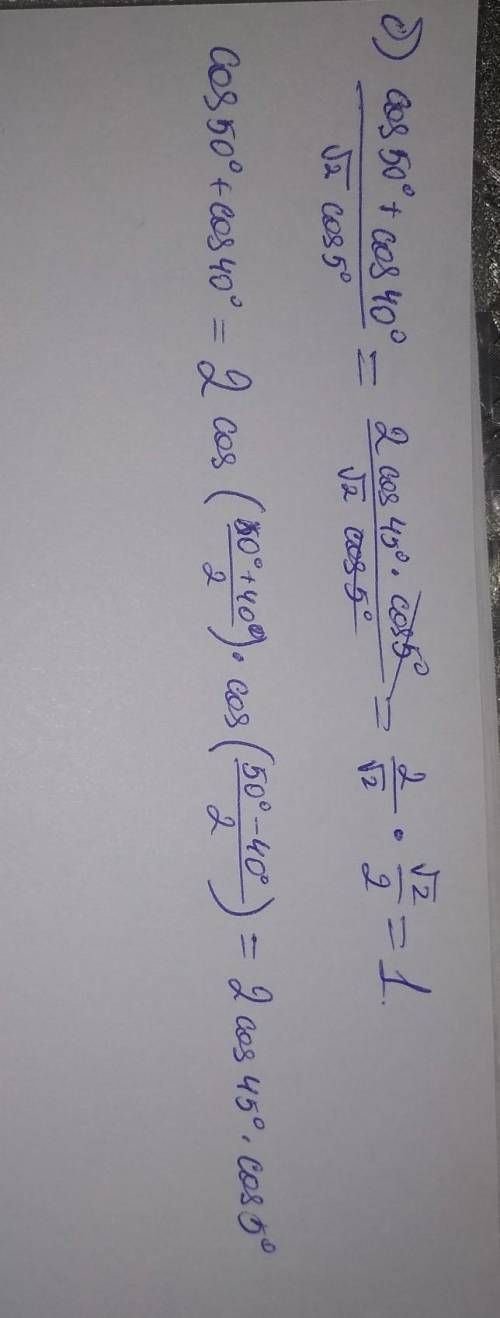 б) (cos 50° + cos 40°) / (√2 cos 5°) = (2 cos 45° · cos 5°) / (√2 cos 5°) = 2/√2 · √2/2 = 1.
cos 50° + cos 40° = 2 cos ((50° + 40°)/2) · cos ((50° - 40°)/2) = 2 cos 45° · cos 5°